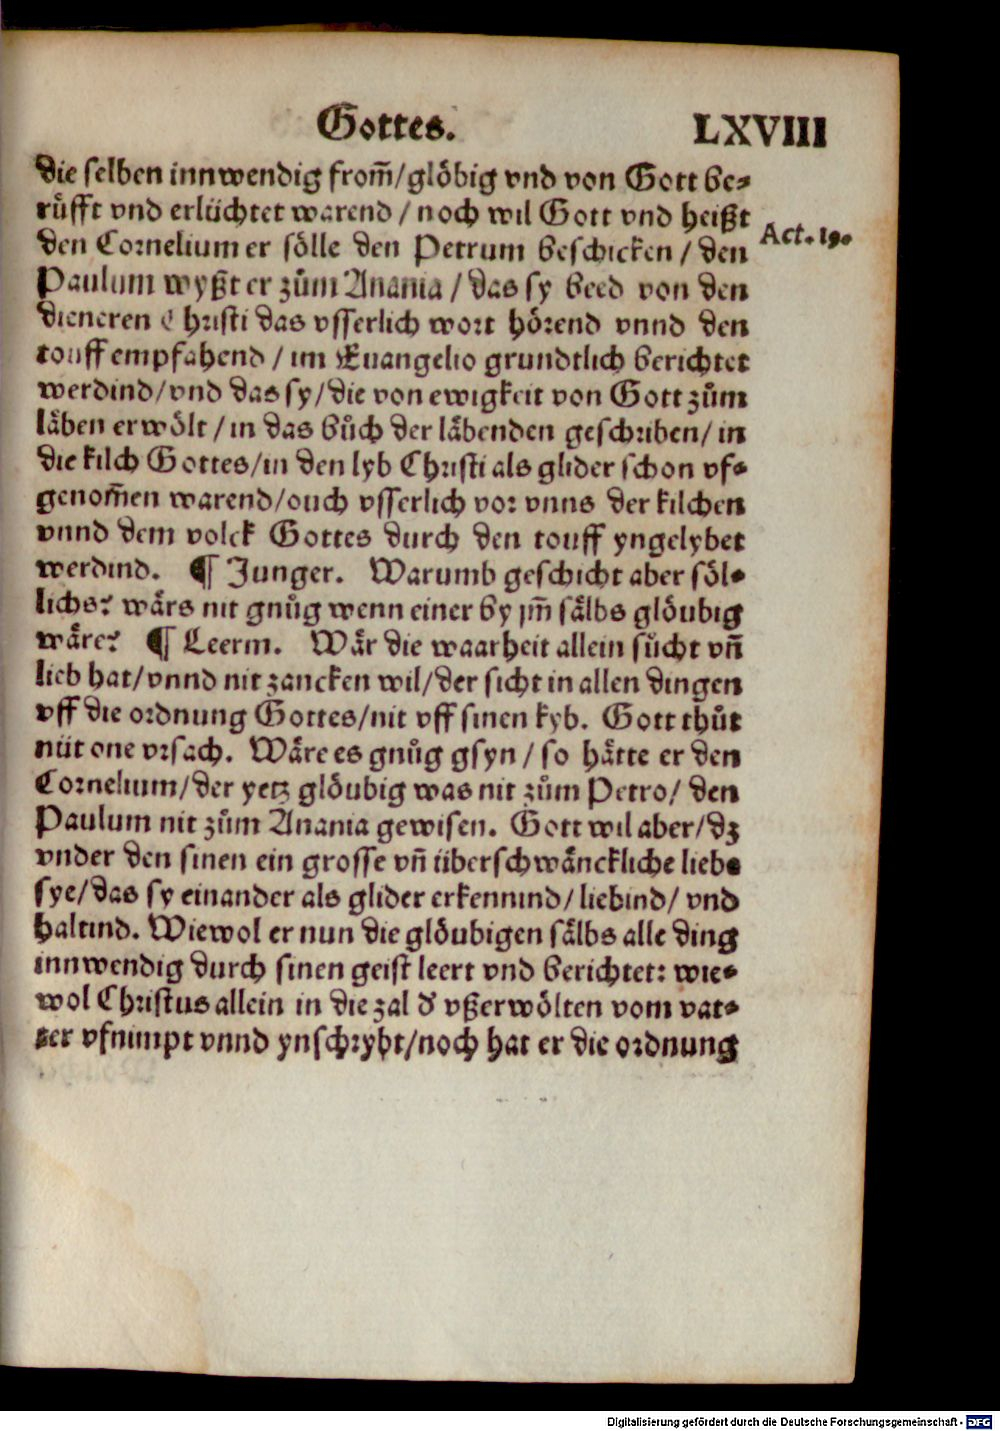 Gottes. LXVIII
die selben innwendig from̃/glöbig vnd von Gott be-
rů̈fft vnd erlüchtet warend / noch wil Gott vnd heißt
den Cornelium er sölle den Petrum beschicken / den
Act. 19.
Paulum wyßt er zům Anania / das sy beed von den
dieneren Christi das vsserlich wort hörend vnnd den
touff empfahend / im Euangelio grundtlich berichtet
werdind/vnd das sy/die von ewigkeit von Gott zům
läben erwölt / in das bůch der läbenden geschriben/ in
die kilch Gottes/in den lyb Christi als glider schon vf-
genom̃en warend/ouch vsserlich vor vnns der kilchen
vnnd dem volck Gottes durch den touff yngelybet
werdind. ¶ Junger. Warumb geschicht aber söl-
lichs? wärs nit gnůg wenn einer by jm̃ sälbs glöubig
wäre? ¶ Leerm. Wär die waarheit allein sůcht vñ
lieb hat/vnnd nit zancken wil/der sicht in allen dingen
vff die ordnung Gottes/nit vff sinen kyb. Gott thůt
nüt one vrsach. Wäre es gnůg gsyn / so hätte er den
Cornelium/der yetz glöubig was nit zům Petro/ den
Paulum nit zům Anania gewisen. Gott wil aber/dz
vnder den sinen ein grosse vñ überschwänckliche liebe
sye/das sy einander als glider erkennind/ liebind/ vnd
haltind. Wiewol er nun die glöubigen sälbs alle ding
innwendig durch sinen geist leert vnd berichtet: wie-
wol Christus allein in die zal d' vßerwölten vom vat-
ter vfnimpt vnnd ynschrybt/noch hat er die ordnung
Digitalisierung gefördert durch die Deutsche Forschungsgemeinschaft - DFG